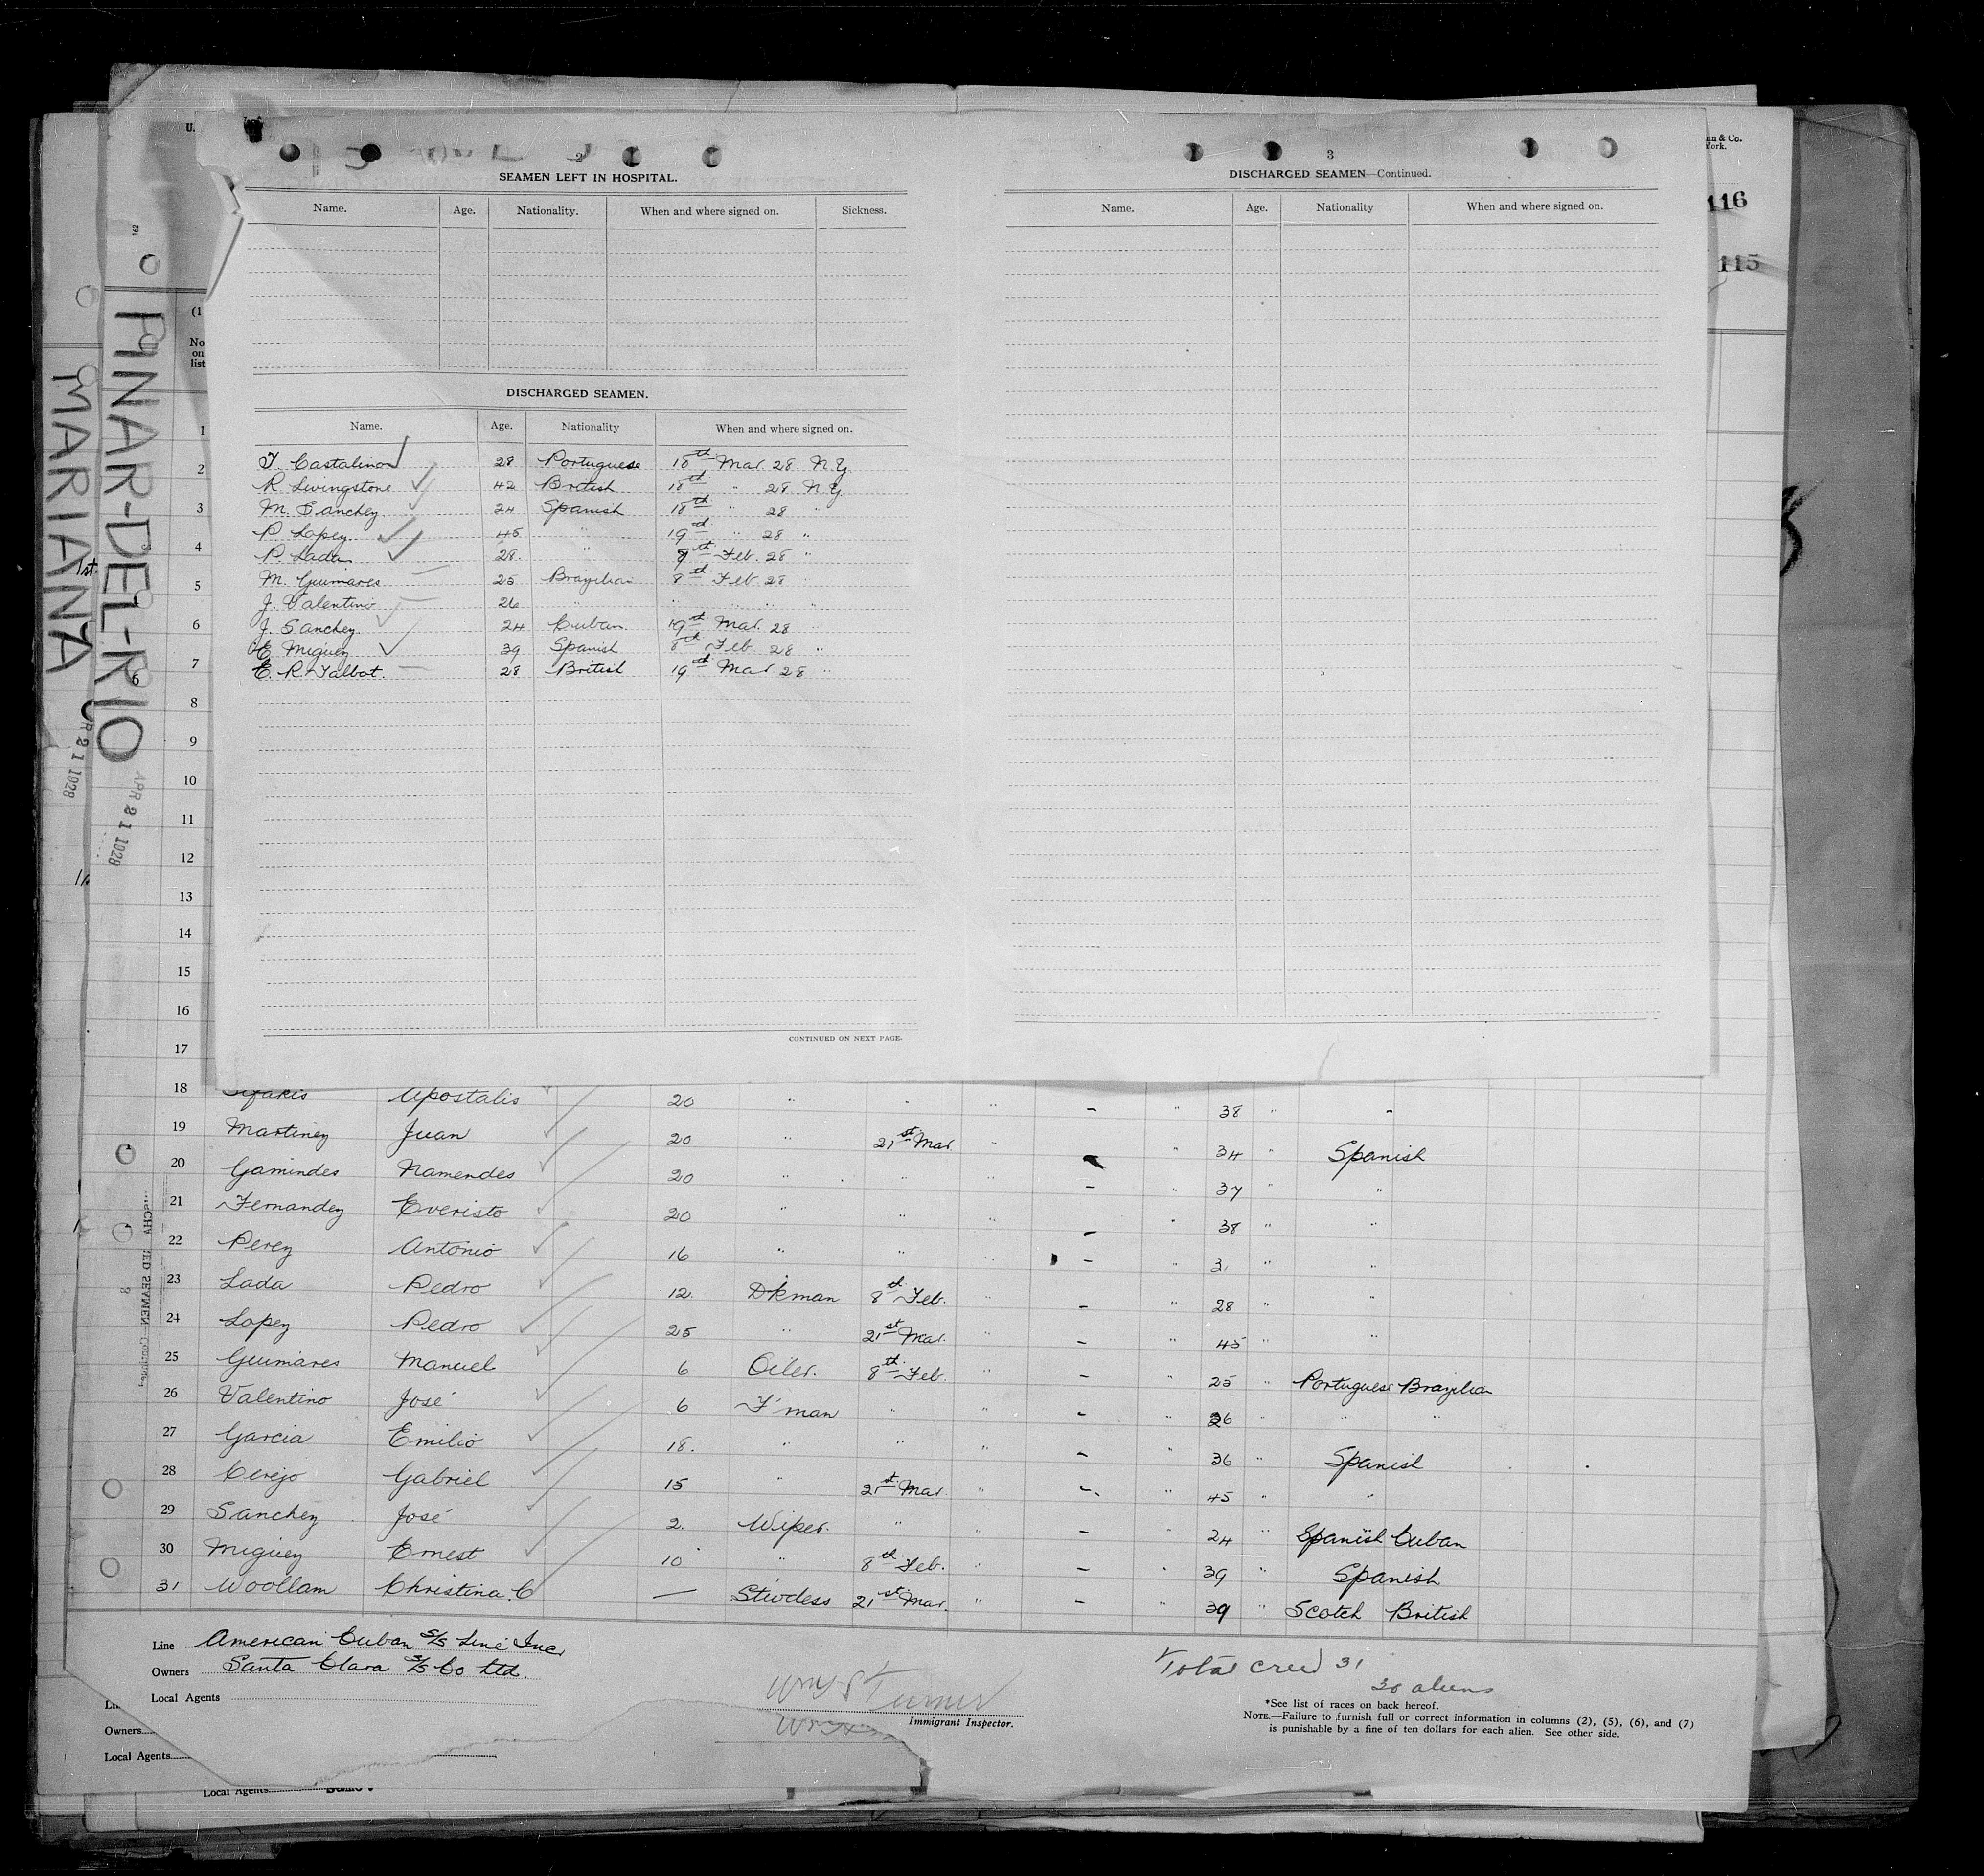 2
SEAMEN LEFT IN HOSPITAL.
Name. Age. Nationality. When and where signed on. Sickness.
DISCHARGED SEAMEN.
Name. Age. Nationality When and where signed on.
T. Castalinon 28 Portuguese 18th Mar. 28. N.Y.
R. Livingstone 42 British 18th " 28 N.Y.
M. Sanchez 24 Spanish 18th " 28 "
P. Lopez 45 " 19th " 28 "
P. Lada 28. " 8th Feb. 28 "
M. Guimares 25 Brazilian 8th Feb. 28
J. Valentino 26 " " " " "
J. Sanchez 24 Cuban. 19th Mar. 28 "
E. Miguez 39 Spanish 8th Feb 28 "
E. R. Talbot. 28 British 19th Mar 28 "
CONTINUED ON NEXT PAGE.
3
DISCHARGED SEAMEN—Continued.
Name. Age. Nationality When and where signed on.
116
115
nn & Co.
York.
U.
162
PINAR-DEL-RIO
APR 21 1928
MARIANA
R 21 1928
1st.
(1
No
on
list
1
2
3
4
5
6
7
8
9
10
11
12
13
14
15
16
17
18 Apostalis 20 " " " - " 38 " "
19 Martinez Juan 20 " 21st Mar. " - " 34 " Spanish
20 Gamindes Namendes 20 " " " - " 37 " "
21 Fernandez Everisto 20 " " " - " 38 " "
22 Perez Antonio 16 " " " - " 31 " "
23 Lada Pedro 12. Dkman 8th Feb. " - " 28 " "
24 Lopez Pedro 25 " 21st Mar. " - " 45 " "
25 Guimares Manuel 6 Oiler. 8th Feb. " - " 25 " Portuguese Brazilian
26 Valentino José 6 F'man " " - " 26 " " "
27 Garcia Emilio 18. " " " - " 36 " Spanish
28 Cerejo Gabriel 15 " 21st Mar. " - " 45 " "
29 Sanchez José 2. Wiper. " " - " 24 " Spanish Cuban
30 Miguez Ernest 10 " 8th Feb. " - " 39 " Spanish
31 Woollam Christina. C — Stwdess 21st Mar. " - " 39 " Scotch British
Line American Cuban S/S Line Inc.
Owners Santa Clara S/S Co Ltd.
Local Agents
Immigrant Inspector.
Total crew 31
30 aliens
*See list of races on back hereof.
NOTE.—Failure to furnish full or correct information in columns (2), (5), (6), and (7)
is punishable by a fine of ten dollars for each alien. See other side.
Owners
Local Agents
Local Agents